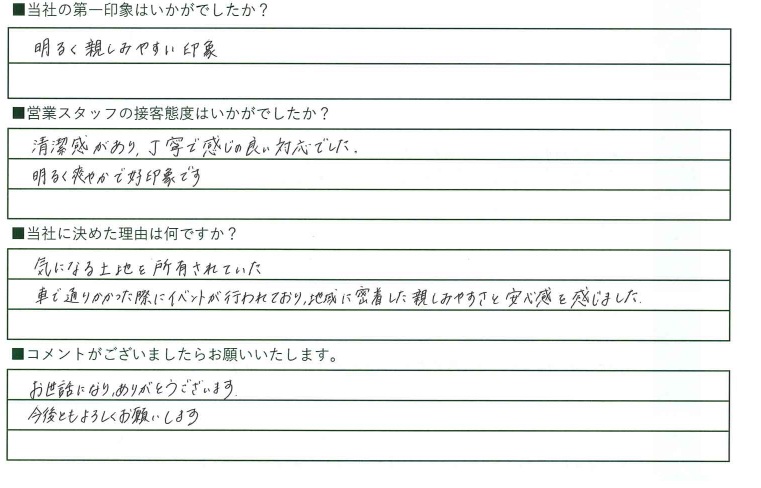 ■当社の第一印象はいかがでしたか？
明るく親しみやすい印象
■営業スタッフの接客態度はいかがでしたか？
清潔感があり、丁寧で感じの良い対応でした。
明るく爽やかで好印象です
■当社に決めた理由は何ですか？
気になる土地を所有されていた
車で通りかかった際にイベントが行われており、地域に密着した親しみやすさと安心感を感じました。
■コメントがございましたらお願いいたします。
お世話になり、ありがとうございます。
今後ともよろしくお願いします